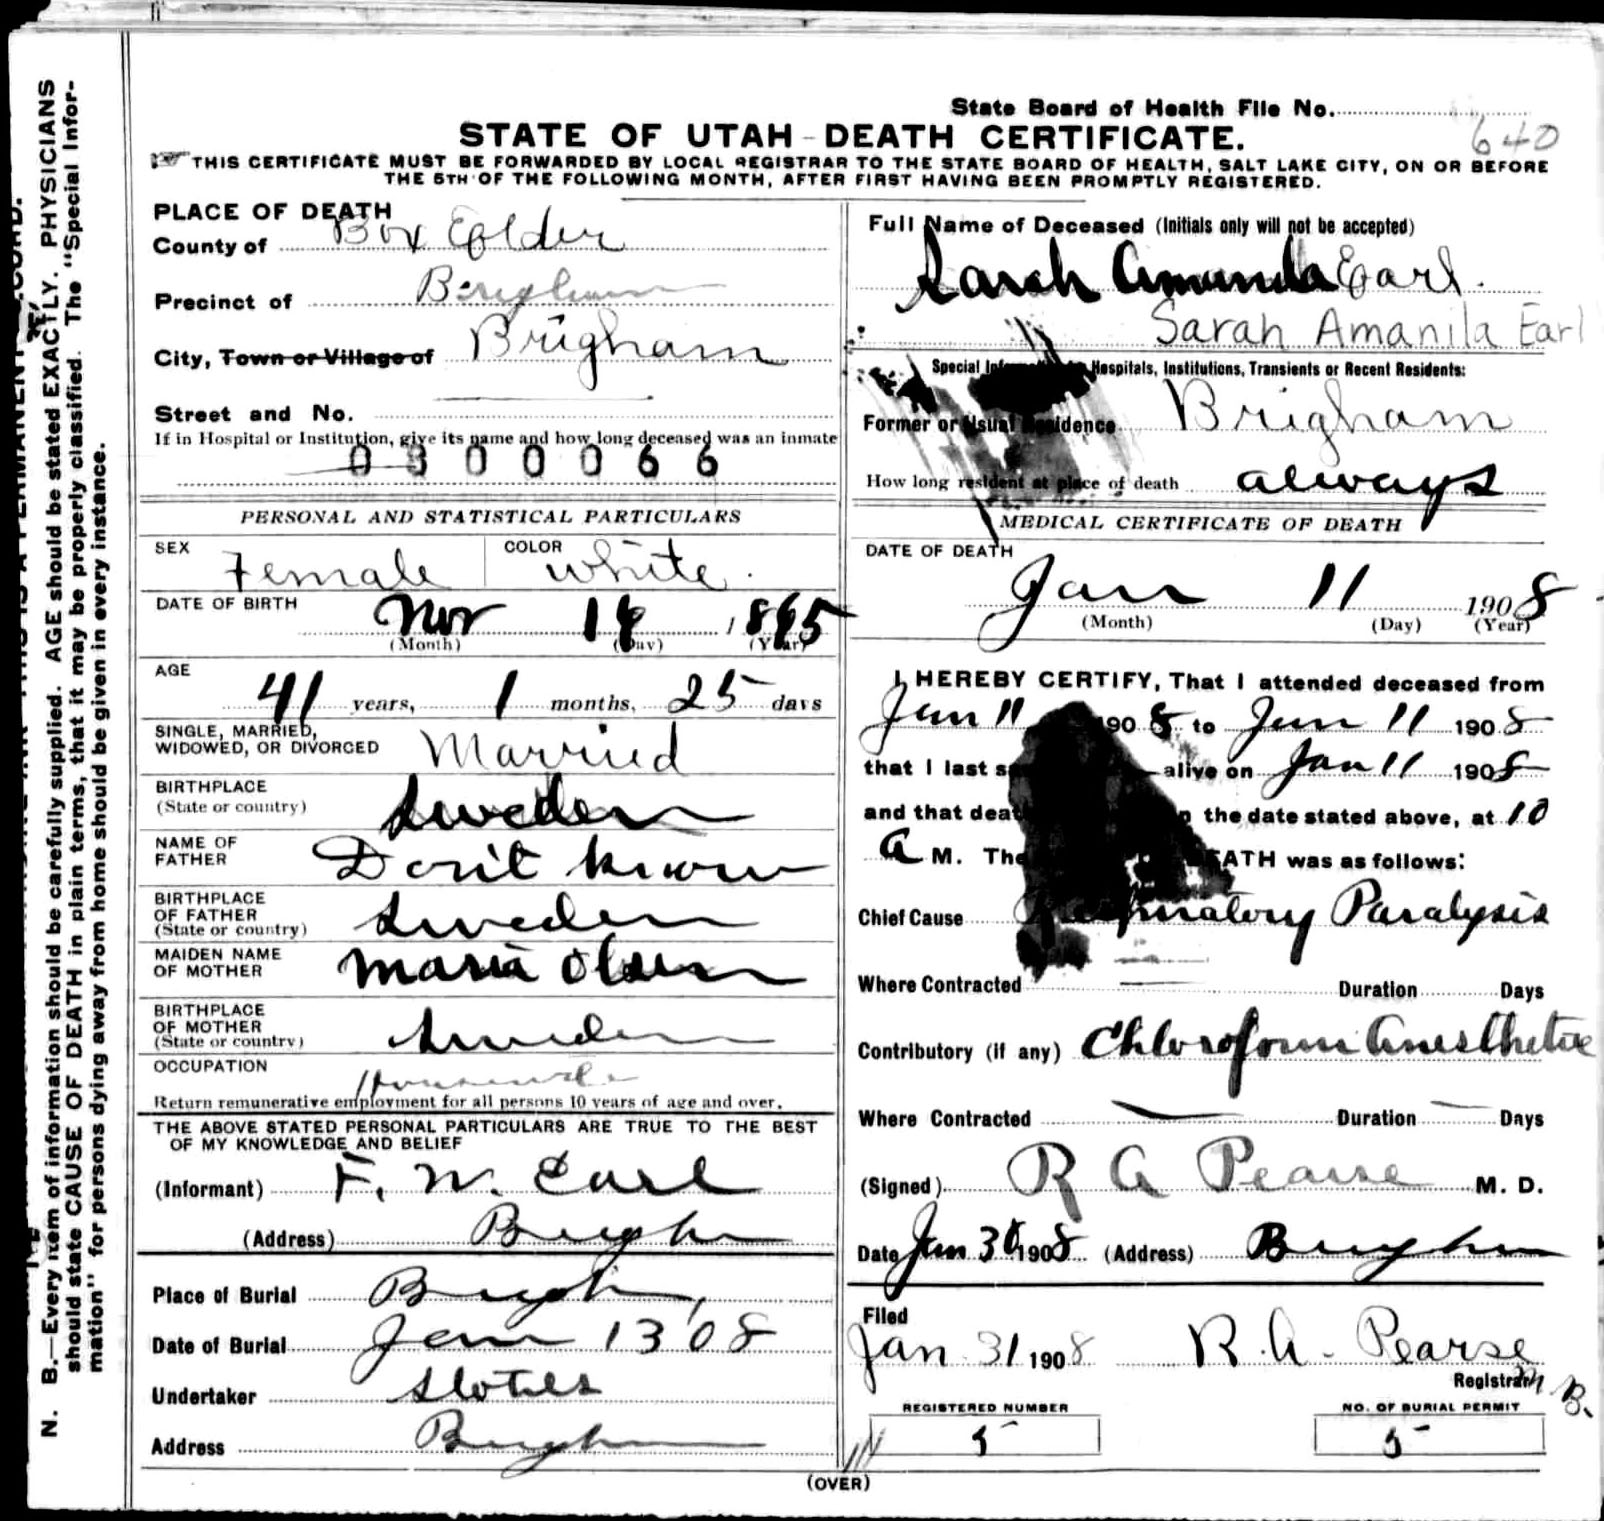 State Board of Health File No.
640
STATE OF UTAH - DEATH CERTIFICATE.
THIS CERTIFICATE MUST BE FORWARDED BY LOCAL REGISTRAR TO THE STATE BOARD OF HEALTH, SALT LAKE CITY, ON OR BEFORE
THE 5TH OF THE FOLLOWING MONTH, AFTER FIRST HAVING BEEN PROMPTLY REGISTERED.
PLACE OF DEATH
County of Box Elder
Precinct of Brigham
City, Town or Village of Brigham
Street and No.
If in Hospital or Institution, give its name and how long deceased was an inmate
0300066
PERSONAL AND STATISTICAL PARTICULARS
SEX Female COLOR White.
DATE OF BIRTH Nov 16 1865
(Month) (Day) (Year)
AGE 41 years, 1 months, 25 days
SINGLE, MARRIED,
WIDOWED, OR DIVORCED Married
BIRTHPLACE
(State or country) Sweden
NAME OF
FATHER Don't know
BIRTHPLACE
OF FATHER
(State or country) Sweden
MAIDEN NAME
OF MOTHER Maria Olsen
BIRTHPLACE
OF MOTHER
(State or country) Sweden
OCCUPATION Housewife
Return remunerative employment for all persons 10 years of age and over.
THE ABOVE STATED PERSONAL PARTICULARS ARE TRUE TO THE BEST
OF MY KNOWLEDGE AND BELIEF
(Informant) F. W. Earl
(Address) Brigham
Place of Burial Brigham,
Date of Burial Jan 13 '08
Undertaker
Address Brigham
Full Name of Deceased (Initials only will not be accepted)
Sarah Amanda Earl.
Sarah Amanila Earl
Special Hospitals, Institutions, Transients or Recent Residents:
Former or Usual Residence Brigham
How long resident at place of death always
MEDICAL CERTIFICATE OF DEATH
DATE OF DEATH
Jan 11 1908
(Month) (Day) (Year)
I HEREBY CERTIFY, That I attended deceased from
Jan 11 1908 to Jan 11 1908
that I last alive on Jan 11 1908
and that the date stated above, at 10
A M. The DEATH was as follows:
Chief Cause Respiratory Paralysis
Where Contracted Duration Days
Contributory (if any) Chloroform Anesthetic
Where Contracted Duration Days
(Signed) R A Pearse M. D.
Date Jan 1908 (Address) Brigham
Filed
Jan 31 1908 R. A. Pearse
Registrar
REGISTERED NUMBER NO. OF BURIAL PERMIT
5 5
(OVER)
N. B.—Every item of information should be carefully supplied. AGE should be stated EXACTLY. PHYSICIANS
should state CAUSE OF DEATH in plain terms, that it may be properly classified. The "Special Infor-
mation" for persons dying away from home should be given in every instance.